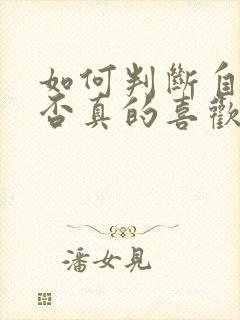 如何判斷自
否真的喜歡
潘女見